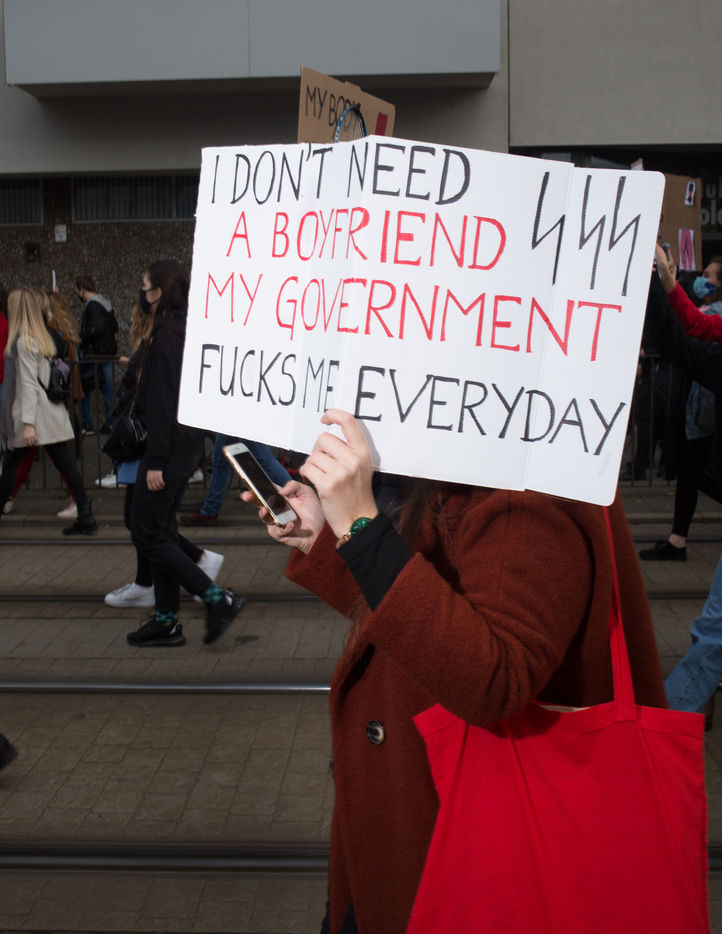 MY BODY
I DON'T NEED
A BOYFRIEND
MY GOVERNMENT
FUCKS ME EVERYDAY